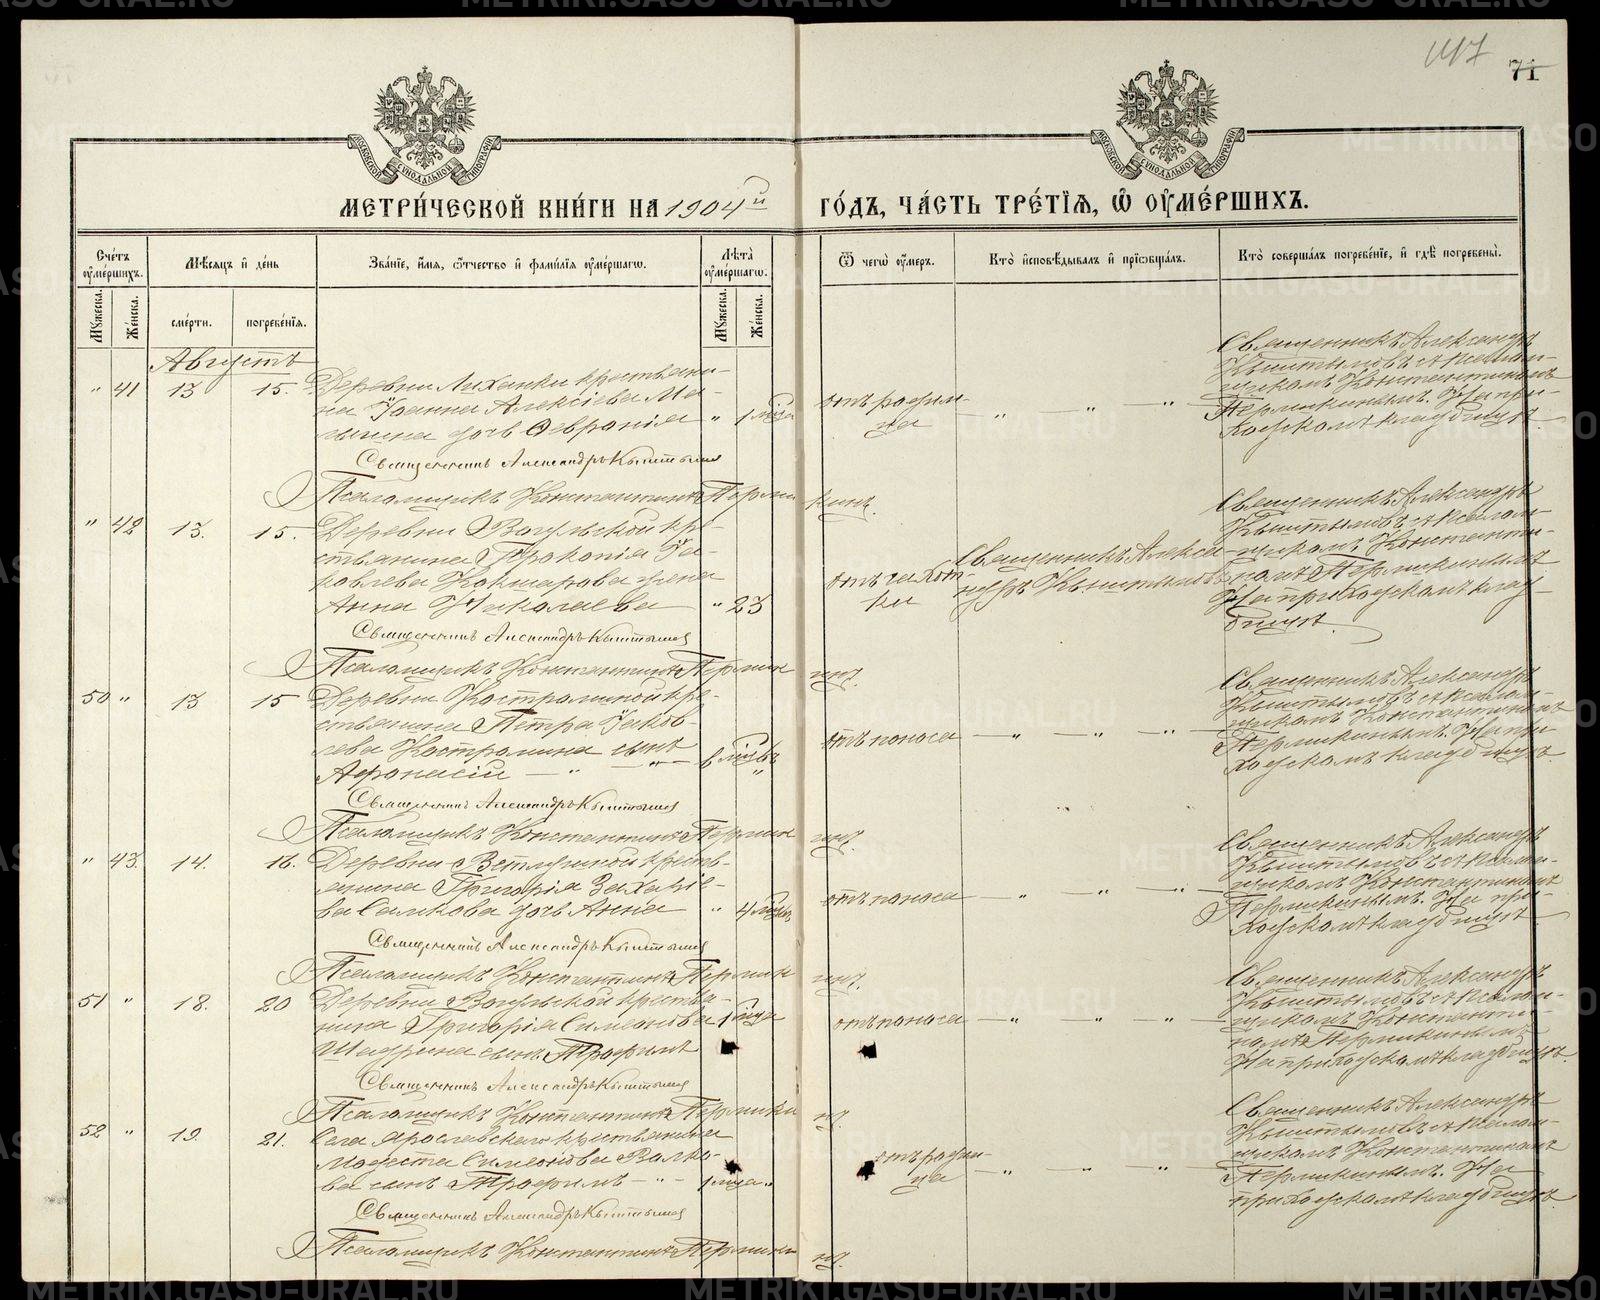 117
71
МЕТРИ́ЧЕСКОЙ КНИ́ГИ НА 1904й ГО́ДЪ, ЧА́СТЬ ТРЕ́ТІЯ, Ѿ ОУМЕ́РШИХЪ.
Сче́тъ оуме́ршихъ.
Мѣ́сяцъ и де́нь
Зва́ніе, и́мя, ѻ́тчество и фами́лія оуме́ршагѡ.
Лѣта̀ оуме́ршагѡ.
Ѿ чегѡ̀ оу́меръ.
Кто̀ исповѣ́дывалъ и пріѡбща́лъ.
Кто̀ соверша́лъ погребе́ніе, и гдѣ̀ погребены̀.
Му́жеска.
Же́нска.
сме́рти.
погребе́нія.
Му́жеска.
Же́нска.
Августъ
" 41 13 15. Деревни Лиханки крестьяни-
на Іоанна Алексіева Ма-
лыгина дочь Февронія " 1 мѣсца
отъ родим-
ца
" " "
Священникъ Александръ
Кыштымовъ съ псалом-
щикомъ Константиномъ
Пермикинымъ. На при-
ходскомъ кладбищѣ.
Священникъ Александръ Кыштымовъ
Псаломщикъ Константинъ Пермикинъ.
" 42 13. 15. Деревни Вогульской кре-
стьянина Прокопія Іа-
ковлева Кокшарова жена
Анна Николаева " 23
отъ чахот-
ки
Священникъ Алекса-
ндръ Кыштымовъ
Священникъ Александръ
Кыштымовъ съ псалом-
щикомъ Константи-
номъ Пермикинымъ
На приходскомъ клад-
бищѣ.
Священникъ Александръ Кыштымовъ
Псаломщикъ Константинъ Пермикинъ.
50 " 13 15 Деревни Костроминой кре-
стьянина Петра Іаков-
лева Костромина сынъ
Афонасій — " — " — 6 мѣсцъ "
отъ поноса
" " "
Священникъ Александръ
Кыштымовъ съ псалом-
щикомъ Константиномъ
Пермикинымъ. На при-
ходскомъ кладбищѣ.
Священникъ Александръ Кыштымовъ
Псаломщикъ Константинъ Пермикинъ.
" 43. 14. 16. Деревни Ветлугиной кресть-
янина Григорія Захаріе-
ва Салкова дочь Анна " 4 мѣсцъ
отъ поноса
" " "
Священникъ Александръ
Кыштымовъ съ псалом-
щикомъ Константиномъ
Пермикинымъ. На при-
ходскомъ кладбищѣ
Священникъ Александръ Кыштымовъ
Псаломщикъ Константинъ Пермикинъ.
51 " 18. 20 Деревни Вогульской крестья-
нина Григорія Симеонова 1 мѣсца
Шадрина сынъ Трофимъ
отъ поноса
" " "
Священникъ Александръ
Кыштымовъ съ псалом-
щикомъ Константи-
номъ Пермикинымъ
На приходскомъ кладбищѣ.
Священникъ Александръ Кыштымовъ
Псаломщикъ Константинъ Пермикинъ.
52 " 19. 21. Села Ярославскаго крестьянина
Модеста Симеонова Волко-
ва сынъ Трофимъ — " — 1 мѣсца "
отъ родим-
ца
" " "
Священникъ Александръ
Кыштымовъ съ псалом-
щикомъ Константиномъ
Пермикинымъ. На
приходскомъ кладбищѣ
Священникъ Александръ Кыштымовъ
Псаломщикъ Константинъ Пермикинъ.
METRIKI.GASO-URAL.RU